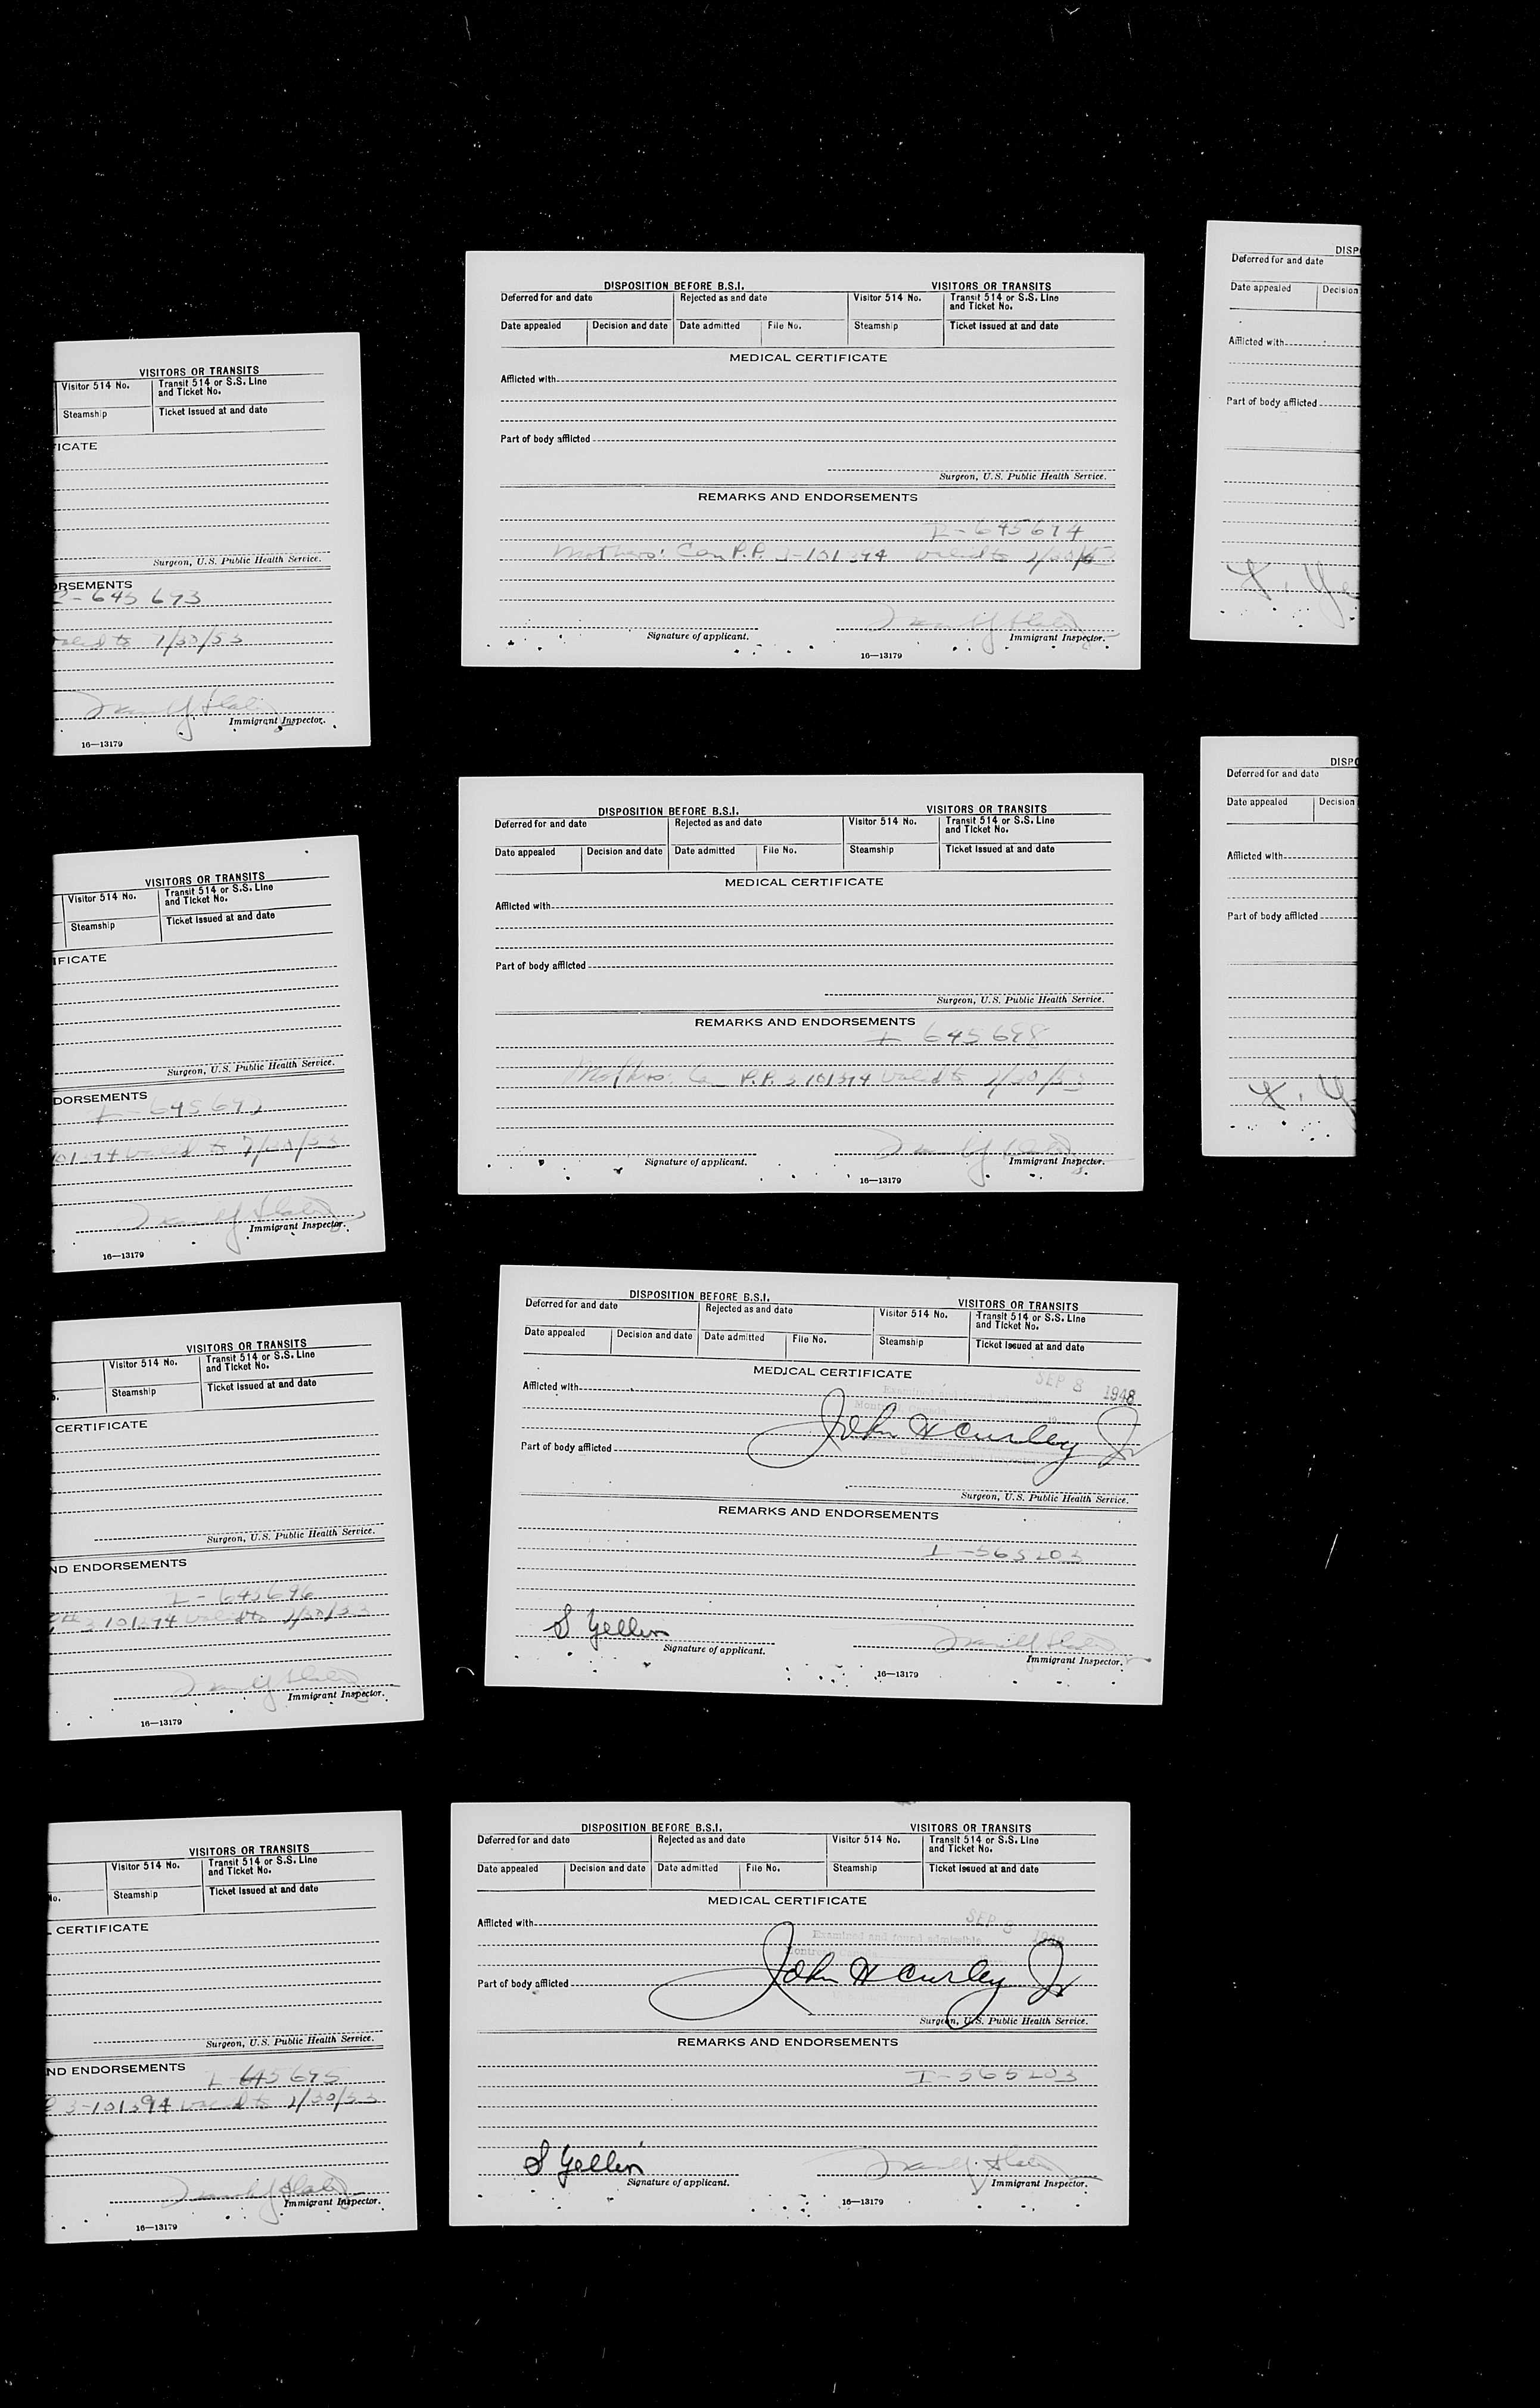 VISITORS OR TRANSITS
Visitor 514 No.
Transit 514 or S.S. Line
and Ticket No.
Steamship
Ticket issued at and date
ICATE
Surgeon, U.S. Public Health Service.
ORSEMENTS
645 693
7/30/53
Immigrant Inspector.
16—13179
VISITORS OR TRANSITS
Visitor 514 No.
Transit 514 or S.S. Line
and Ticket No.
Steamship
Ticket issued at and date
IFICATE
Surgeon, U.S. Public Health Service.
DORSEMENTS
Immigrant Inspector.
16—13179
VISITORS OR TRANSITS
Visitor 514 No.
Transit 514 or S.S. Line
and Ticket No.
Steamship
Ticket issued at and date
CERTIFICATE
Surgeon, U.S. Public Health Service.
ND ENDORSEMENTS
I - 645696
valid to
Immigrant Inspector.
16—13179
VISITORS OR TRANSITS
Visitor 514 No.
Transit 514 or S.S. Line
and Ticket No.
lo.
Steamship
Ticket issued at and date
CERTIFICATE
Surgeon, U.S. Public Health Service.
ND ENDORSEMENTS
I 645 695
3-101394 valid to
Immigrant Inspector.
16—13179
DISPOSITION BEFORE B.S.I.
VISITORS OR TRANSITS
Deferred for and date
Rejected as and date
Visitor 514 No.
Transit 514 or S.S. Line
and Ticket No.
Date appealed
Decision and date
Date admitted
File No.
Steamship
Ticket issued at and date
MEDICAL CERTIFICATE
Afflicted with
Part of body afflicted
Surgeon, U.S. Public Health Service.
REMARKS AND ENDORSEMENTS
I - 645694
Mothers: Can P.P. 3-101394 valid to
Signature of applicant.
Immigrant Inspector.
16—13179
DISPOSITION BEFORE B.S.I.
VISITORS OR TRANSITS
Deferred for and date
Rejected as and date
Visitor 514 No.
Transit 514 or S.S. Line
and Ticket No.
Date appealed
Decision and date
Date admitted
File No.
Steamship
Ticket issued at and date
MEDICAL CERTIFICATE
Afflicted with
Part of body afflicted
Surgeon, U.S. Public Health Service.
REMARKS AND ENDORSEMENTS
I 645698
Mothers: Can P.P. 3 101394 valid to
Signature of applicant.
Immigrant Inspector.
16—13179
DISPOSITION BEFORE B.S.I.
VISITORS OR TRANSITS
Deferred for and date
Rejected as and date
Visitor 514 No.
Transit 514 or S.S. Line
and Ticket No.
Date appealed
Decision and date
Date admitted
File No.
Steamship
Ticket issued at and date
MEDICAL CERTIFICATE
SEP 8 1948
Afflicted with
Examined and found
Montreal, Canada
John H Curley Jr
Part of body afflicted
Surgeon, U.S. Public Health Service.
REMARKS AND ENDORSEMENTS
I - 565203
S Yellen
Signature of applicant.
Immigrant Inspector.
16—13179
DISPOSITION BEFORE B.S.I.
VISITORS OR TRANSITS
Deferred for and date
Rejected as and date
Visitor 514 No.
Transit 514 or S.S. Line
and Ticket No.
Date appealed
Decision and date
Date admitted
File No.
Steamship
Ticket issued at and date
MEDICAL CERTIFICATE
SEP 8 1948
Afflicted with
Examined and found admissible
Montreal, Canada
John H Curley Jr
Part of body afflicted
Surgeon, U.S. Public Health Service.
REMARKS AND ENDORSEMENTS
I - 565203
S Yellen
Signature of applicant.
Immigrant Inspector.
16—13179
DISP
Deferred for and date
Date appealed
Decision
Afflicted with
Part of body afflicted
DISPO
Deferred for and date
Date appealed
Decision
Afflicted with
Part of body afflicted